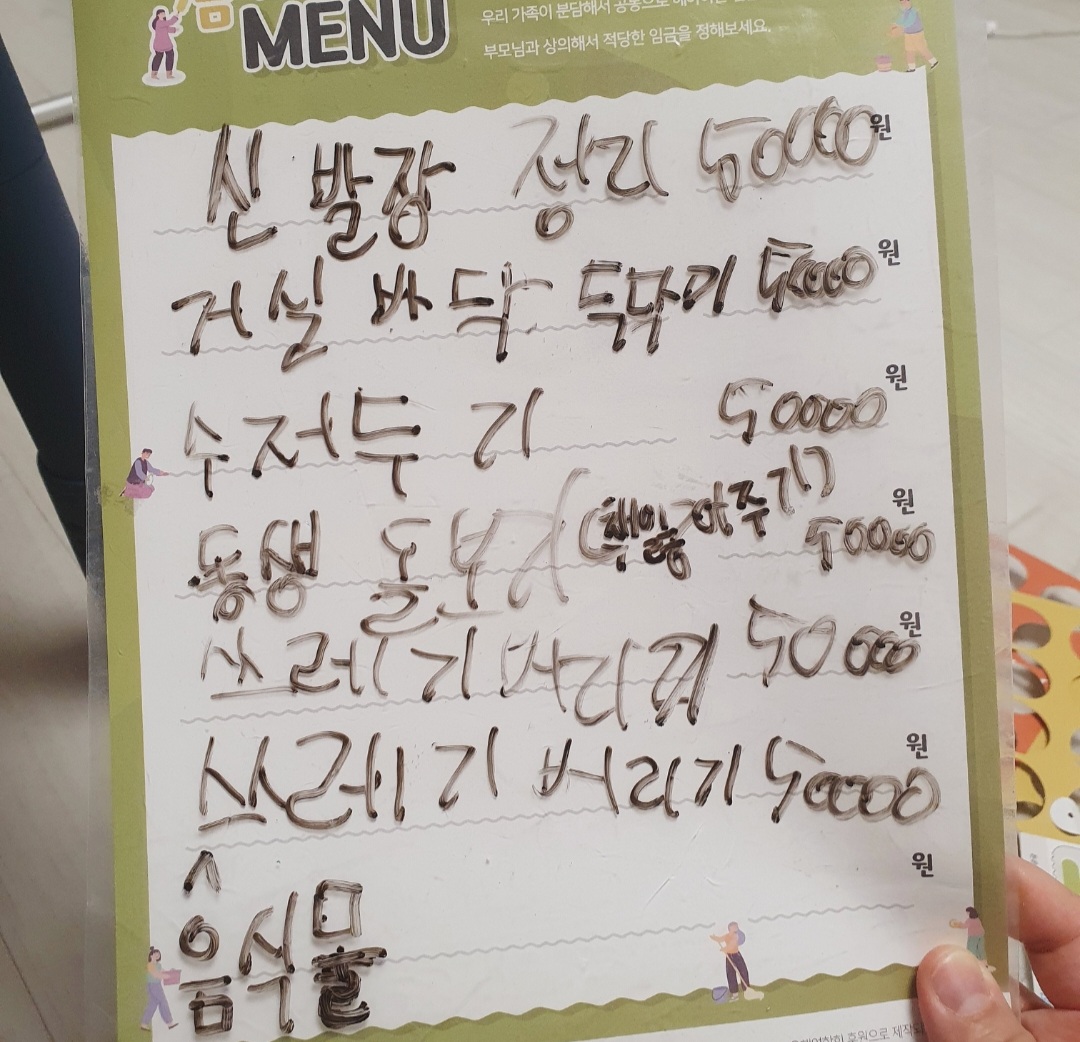 MENU
우리 가족이 분담해서 공동으로 해야하는
부모님과 상의해서 적당한 임금을 정해보세요.
신발장 정리 50000원
거실 바닥 둑닦기 50000원
수저두기 50000원
동생 돌보기 (책읽어주기) 50000원
쓰레기버리기 50000원
쓰레기 버리기 50000원
음식물 원
후원으로 제작